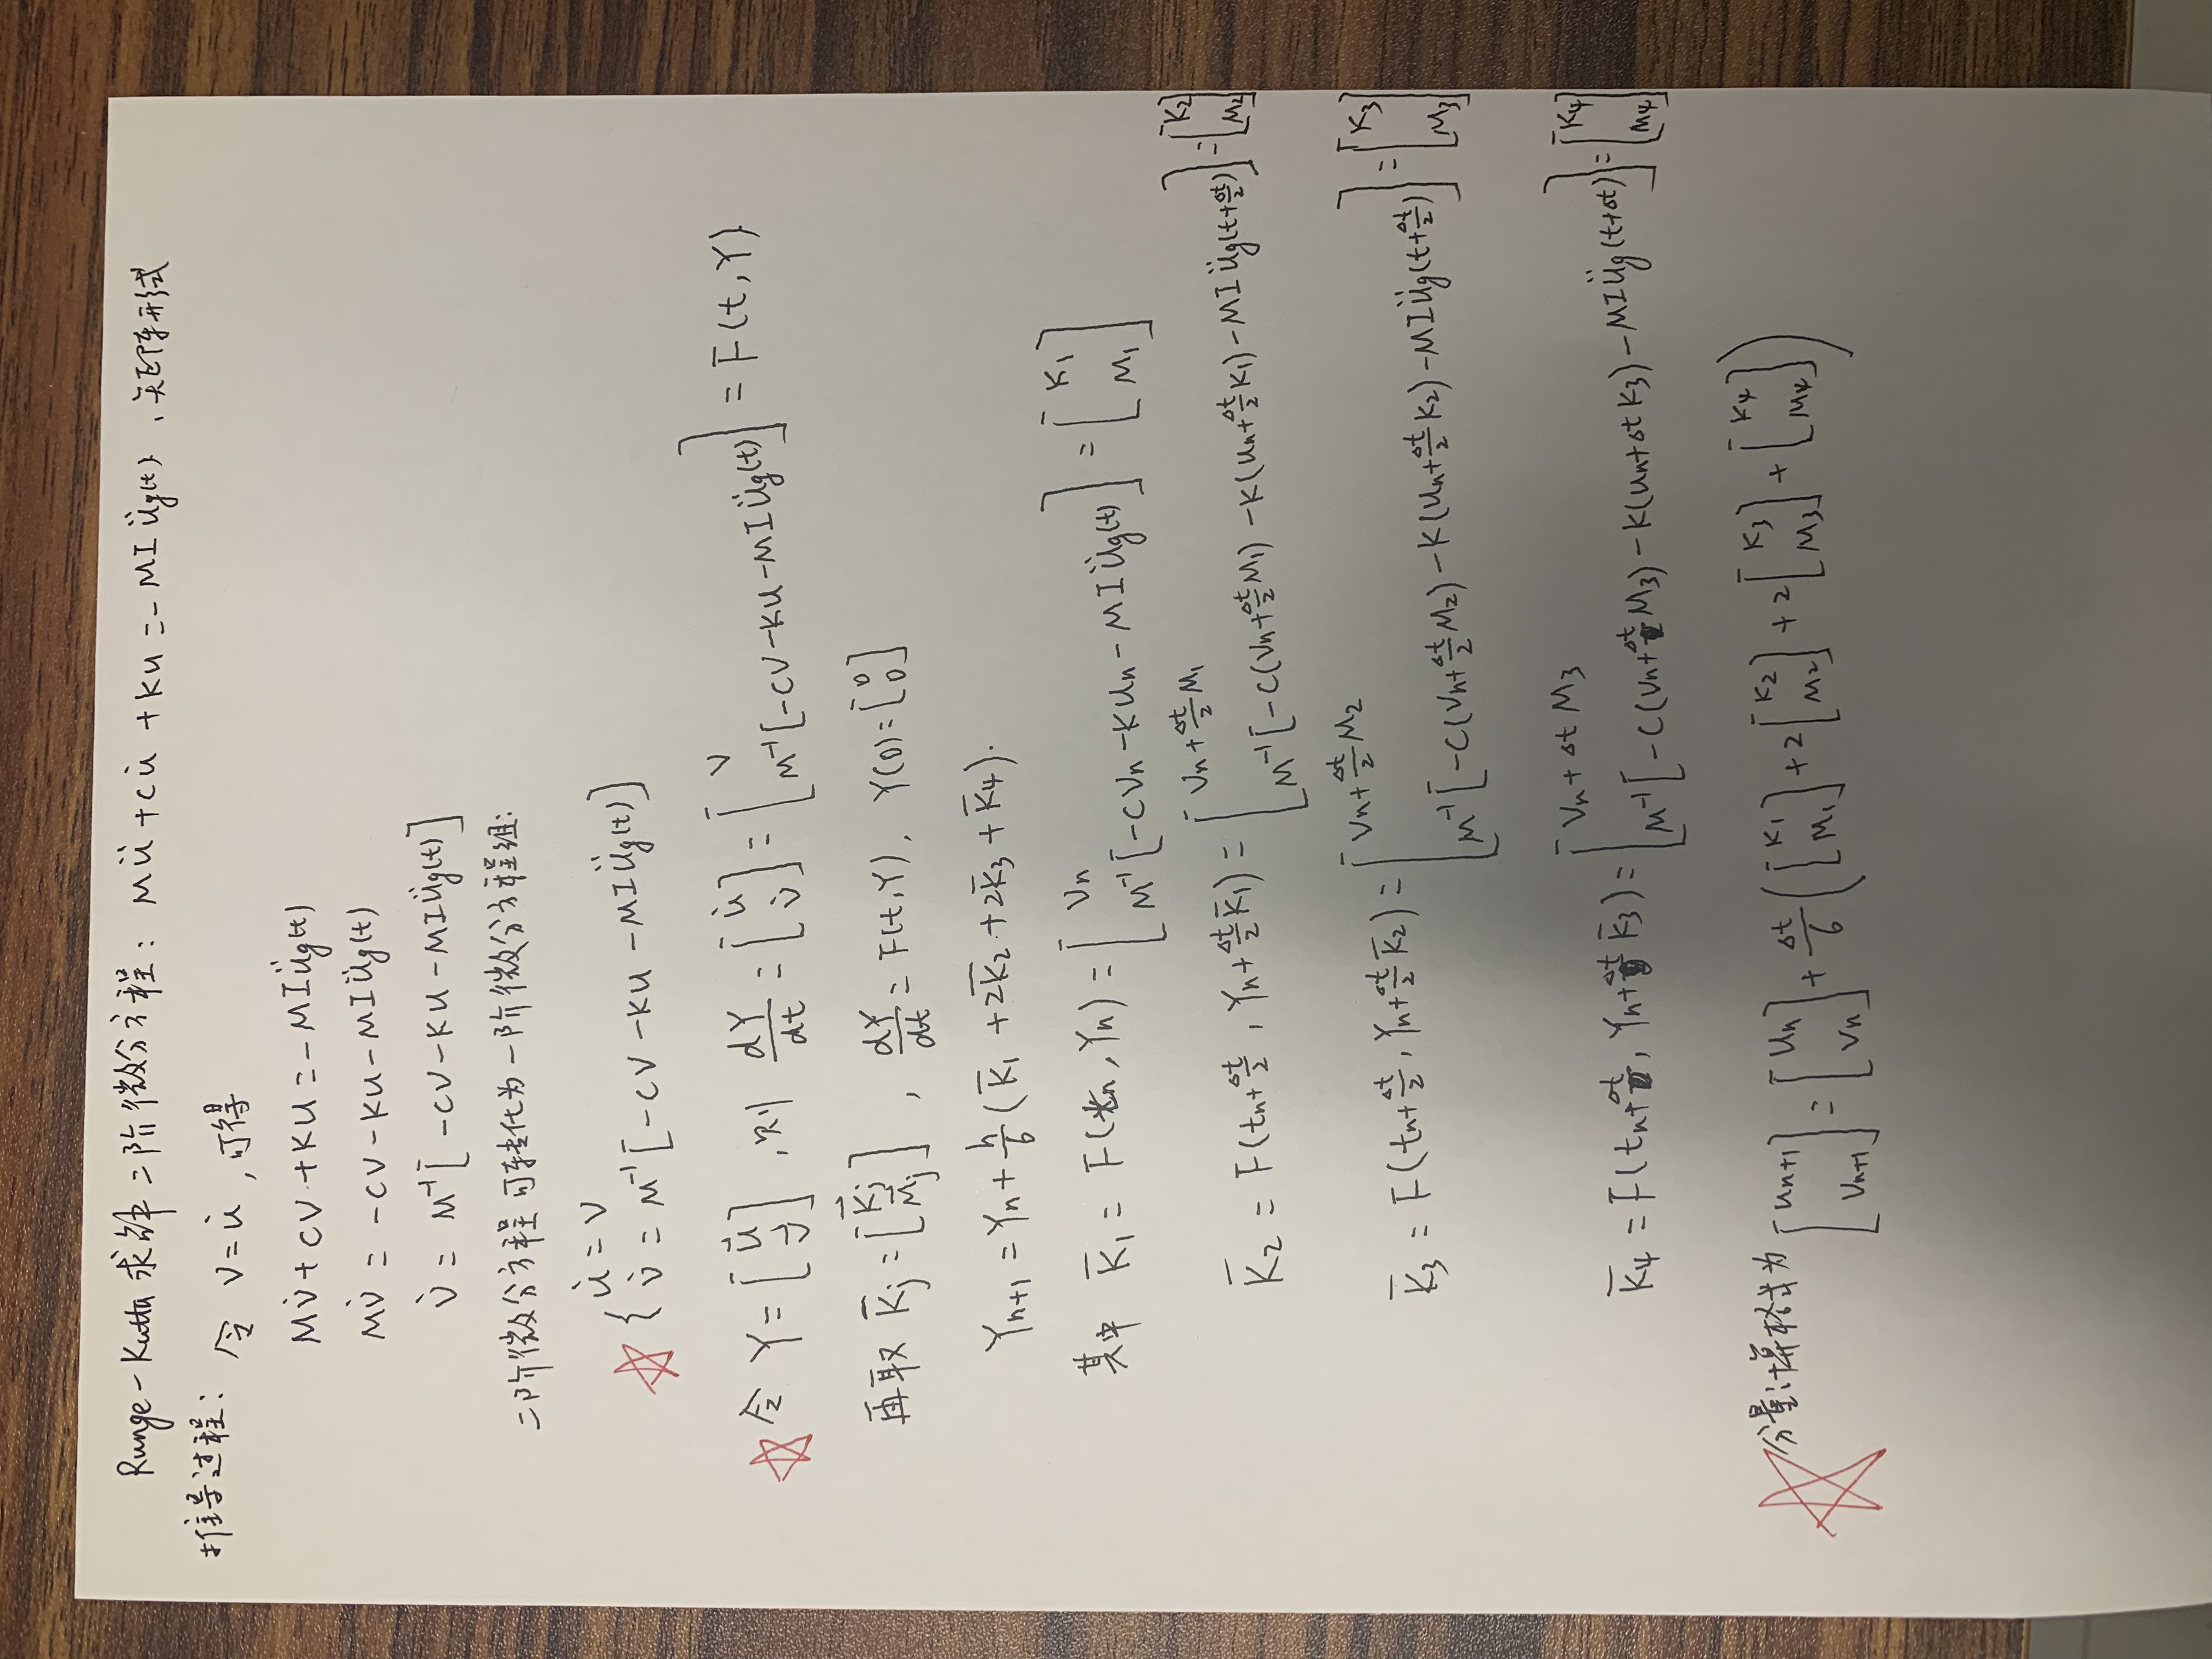 Runge-Kutta 求解二阶微分方程: Mü + Cu̇ + Ku = -MI üg(t), 矩阵形式
推导过程: 令 V = u̇ , 可得
MV̇ + CV + KU = -MIüg(t)
MV̇ = -CV - KU - MIüg(t)
V̇ = M⁻¹[-CV - KU - MIüg(t)]
二阶微分方程可转化为一阶微分方程组:
{ u̇ = V
V̇ = M⁻¹[-CV - KU - MIüg(t)]
令 Y = [u⃗; v⃗] , 则 dY/dt = [u̇; v̇] = [V; M⁻¹[-CV-KU-MIüg(t)] = F(t,Y)
再取 K̄j = [K⃗j; M⃗j] , dY/dt = F(t,Y), Y(0) = [0; 0]
Yn+1 = Yn + h/6 (K̄1 + 2K̄2 + 2K̄3 + K̄4).
其中 K̄1 = F(tn, Yn) = [Vn; M⁻¹[-CVn - KUn - MIüg(t)] = [K1; M1]
K̄2 = F(tn+Δt/2, Yn+Δt/2 K̄1) = [Vn+Δt/2 M1; M⁻¹[-C(Vn+Δt/2 M1) - K(un+Δt/2 K1) - MIüg(t+Δt/2)] = [K2; M2]
K̄3 = F(tn+Δt/2, Yn+Δt/2 K̄2) = [Vn+Δt/2 M2; M⁻¹[-C(Vn+Δt/2 M2) - K(un+Δt/2 K2) - MIüg(t+Δt/2)] = [K3; M3]
K̄4 = F(tn+Δt, Yn+Δt K̄3) = [Vn+Δt M3; M⁻¹[-C(Vn+Δt M3) - K(un+Δt K3) - MIüg(t+Δt)] = [K4; M4]
分量计算格式为 [un+1; Vn+1] = [un; Vn] + Δt/6 ([K1; M1] + 2[K2; M2] + 2[K3; M3] + [K4; M4])